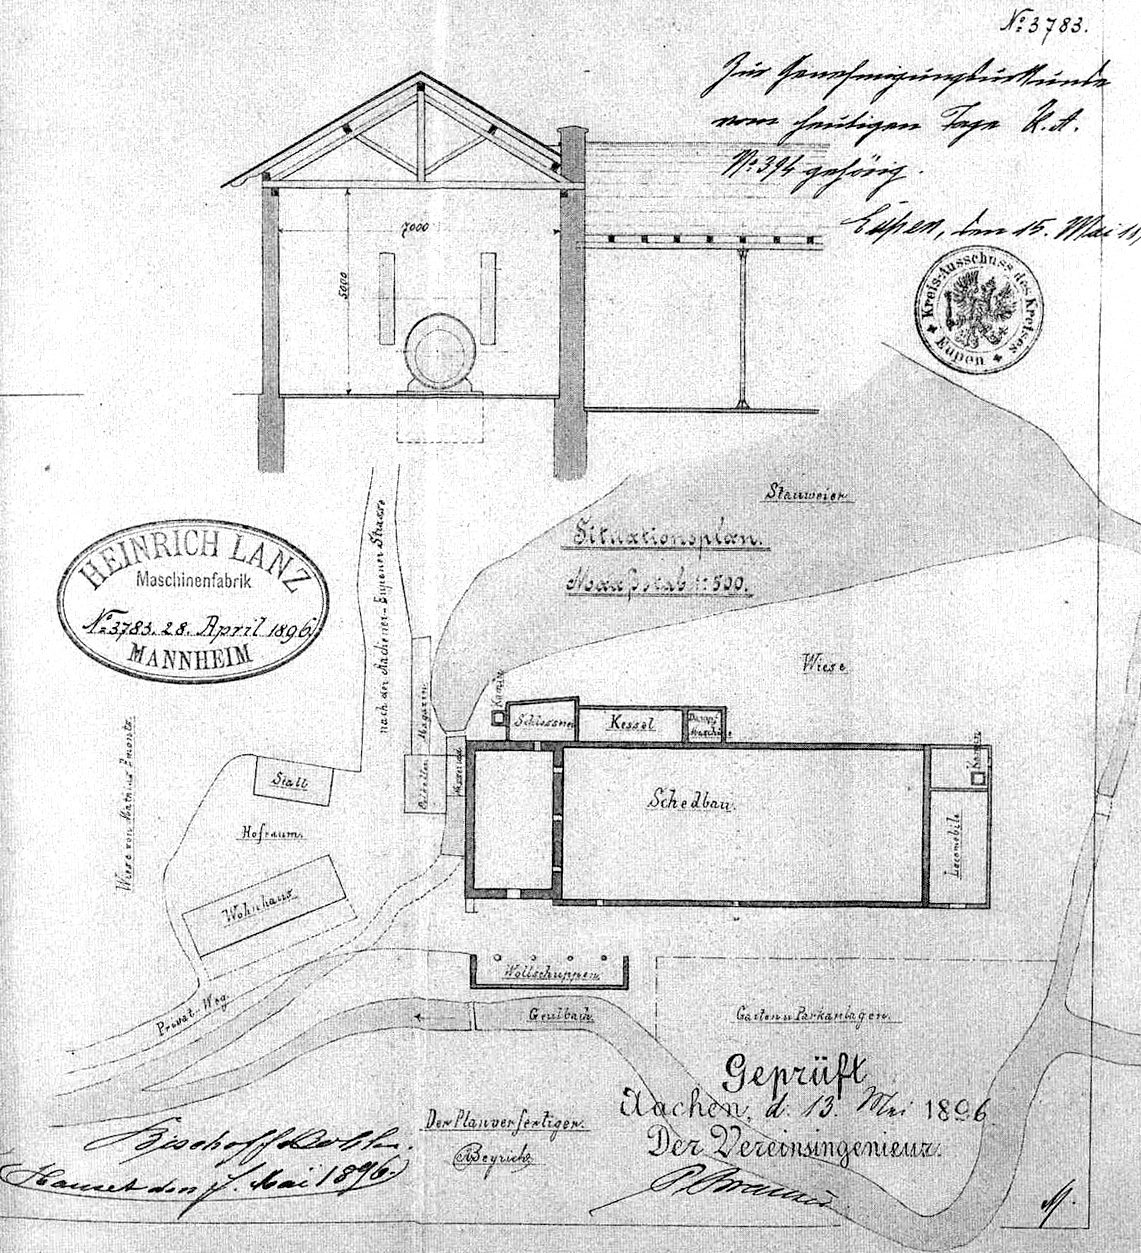 No 3783.
Zur Genehmigungsurkunde
vom heutigen Tage K.A.
No 394 gehörig.
Eupen, den 15. Mai
Kreis-Ausschuss des Kreises
Eupen
7000
5000
Stauweier
Situationsplan.
Maaßstab 1:500.
HEINRICH LANZ
Maschinenfabrik
No 3783. 28. April 1896
MANNHEIM
nach der Aachener-Eupener Strasse
Wiese
Kamin
Magazin
Schlosserei
Kessel
Dampf
maschine
Stall
Wiese von Mathias
Hofraum.
Schedbau.
Kamin
Locomobile
Wohnhaus
Wollschuppen.
Privat-Weg
Geulbach
Garten u Parkanlagen.
Geprüft
Aachen, d. 13. Mai 1896
Der Planverfertiger.
Der Vereinsingenieur.
Hauset den Mai 1896